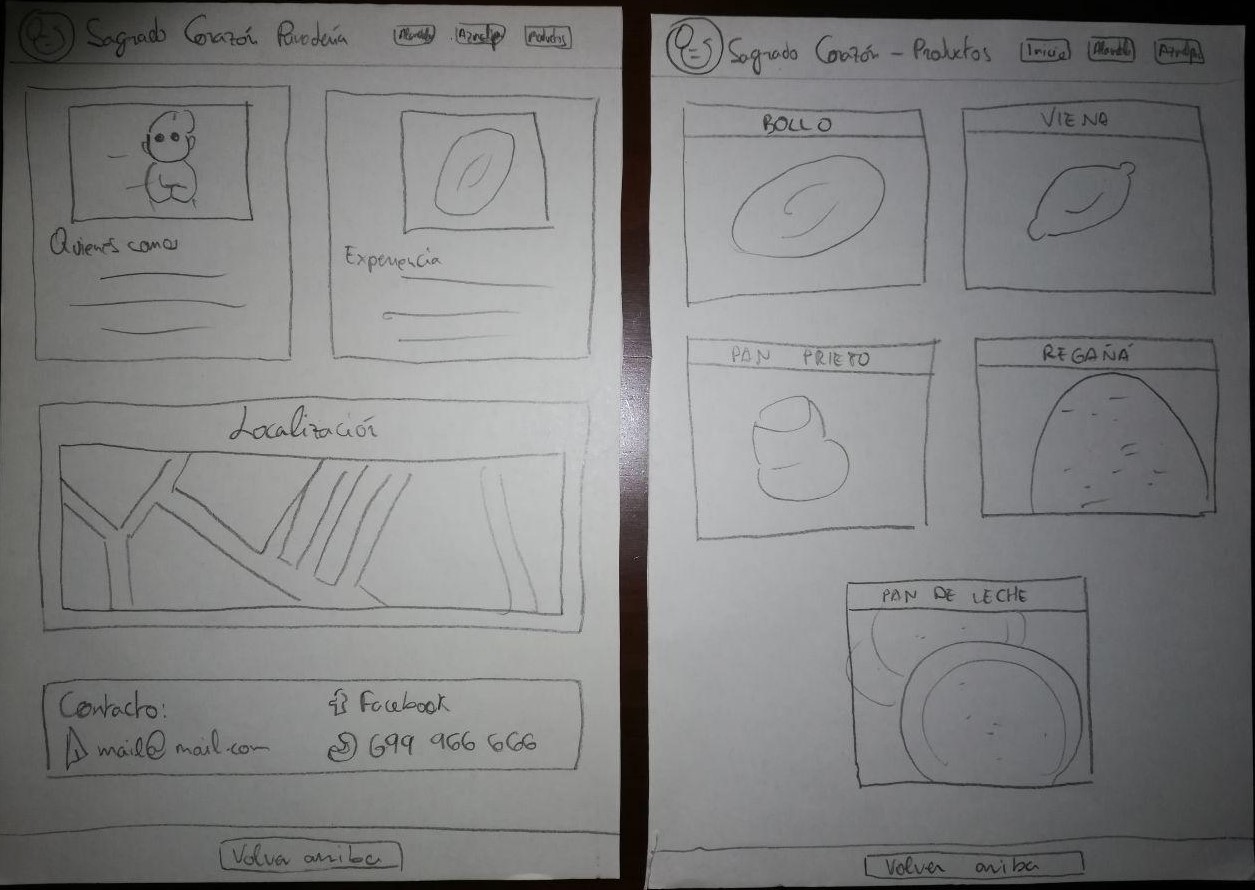 Sagrado Corazón Panadería
Quienes somos
Experiencia
Localización
Contacto:
Facebook
mail@mail.com
699 966 666
Volver arriba
Sagrado Corazón - Productos
Inicio
BOLLO
VIENA
PAN PRIETO
REGAÑÁ
PAN DE LECHE
Volver arriba